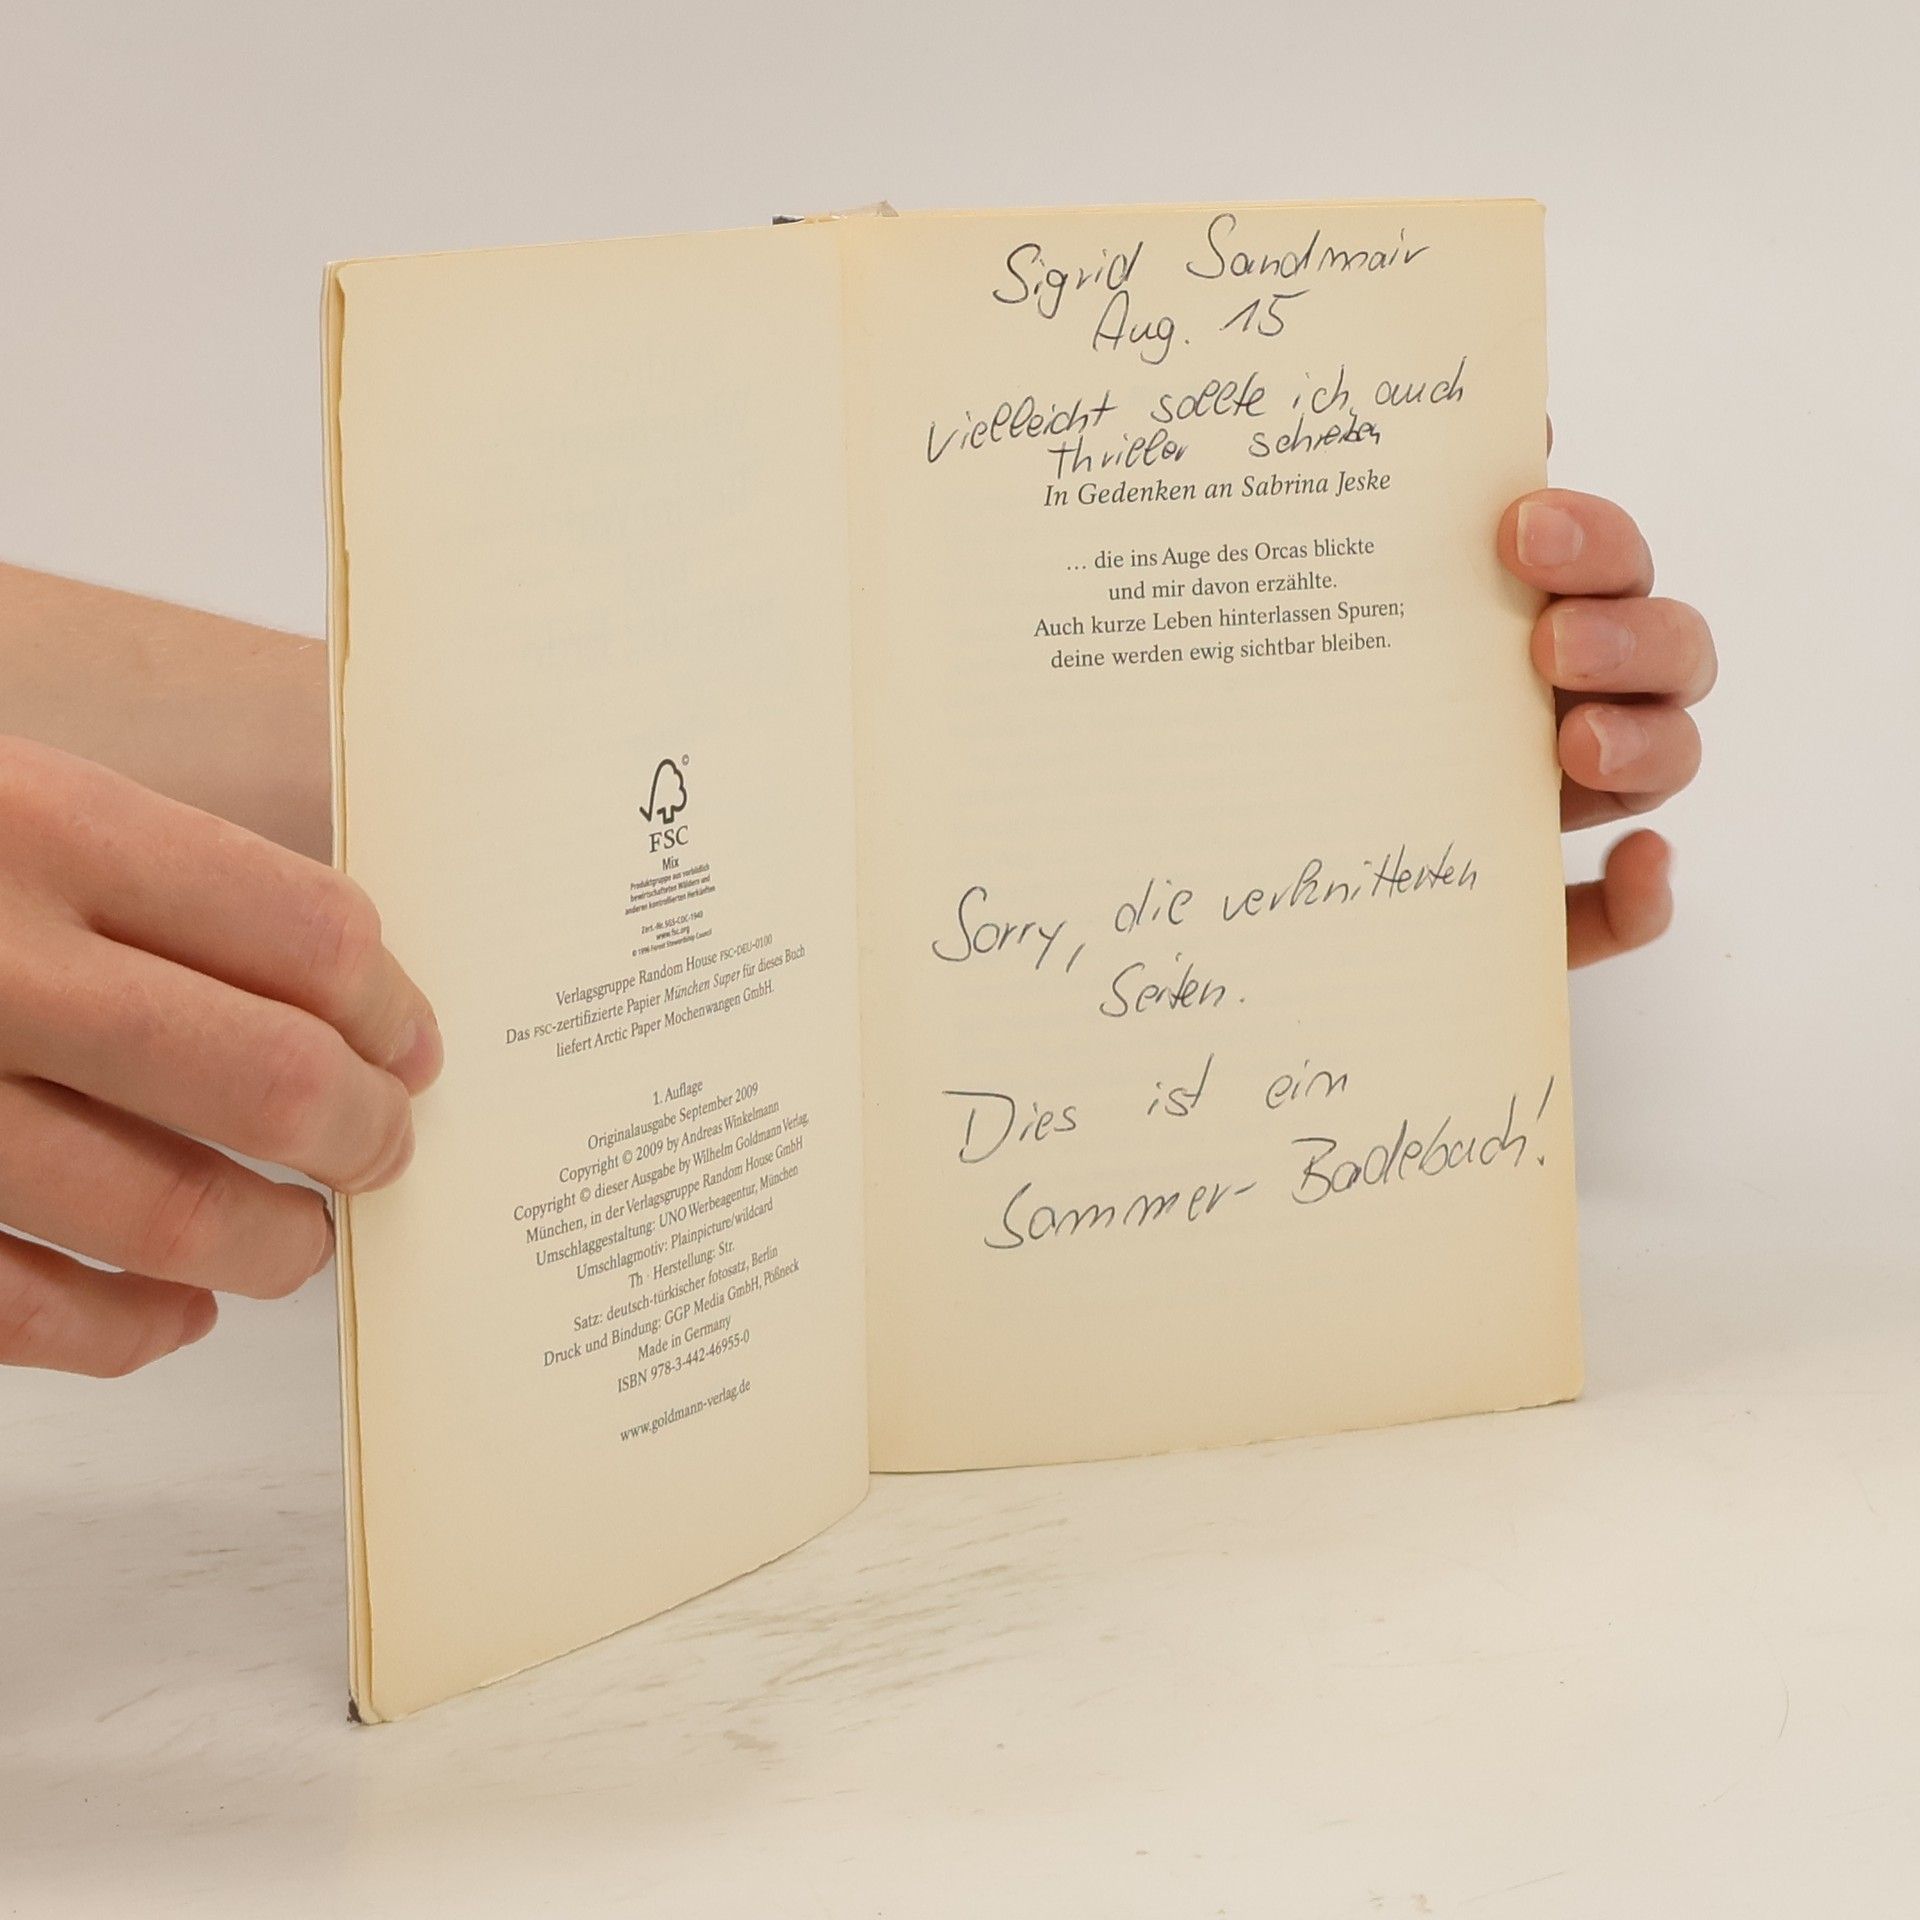 FSC
©
Mix
Produktgruppe aus vorbildlich
bewirtschafteten Wäldern und
anderen kontrollierten Herkünften
Zert.-Nr. SGS-COC-1940
www.fsc.org
© 1996 Forest Stewardship Council
Verlagsgruppe Random House FSC-DEU-0100
Das FSC-zertifizierte Papier München Super für dieses Buch
liefert Arctic Paper Mochenwangen GmbH.
1. Auflage
Originalausgabe September 2009
Copyright © 2009 by Andreas Winkelmann
Copyright © dieser Ausgabe by Wilhelm Goldmann Verlag,
München, in der Verlagsgruppe Random House GmbH
Umschlaggestaltung: UNO Werbeagentur, München
Umschlagmotiv: Plainpicture/wildcard
Th · Herstellung: Str.
Satz: deutsch-türkischer fotosatz, Berlin
Druck und Bindung: GGP Media GmbH, Pößneck
Made in Germany
ISBN 978-3-442-46955-0
www.goldmann-verlag.de
Sigrid Sandmair
Aug. 15
Vielleicht sollte ich auch
Thriller schreiben
In Gedenken an Sabrina Jeske
… die ins Auge des Orcas blickte
und mir davon erzählte.
Auch kurze Leben hinterlassen Spuren;
deine werden ewig sichtbar bleiben.
Sorry, die verknitterten
Seiten.
Dies ist ein
Sommer-Badebuch!